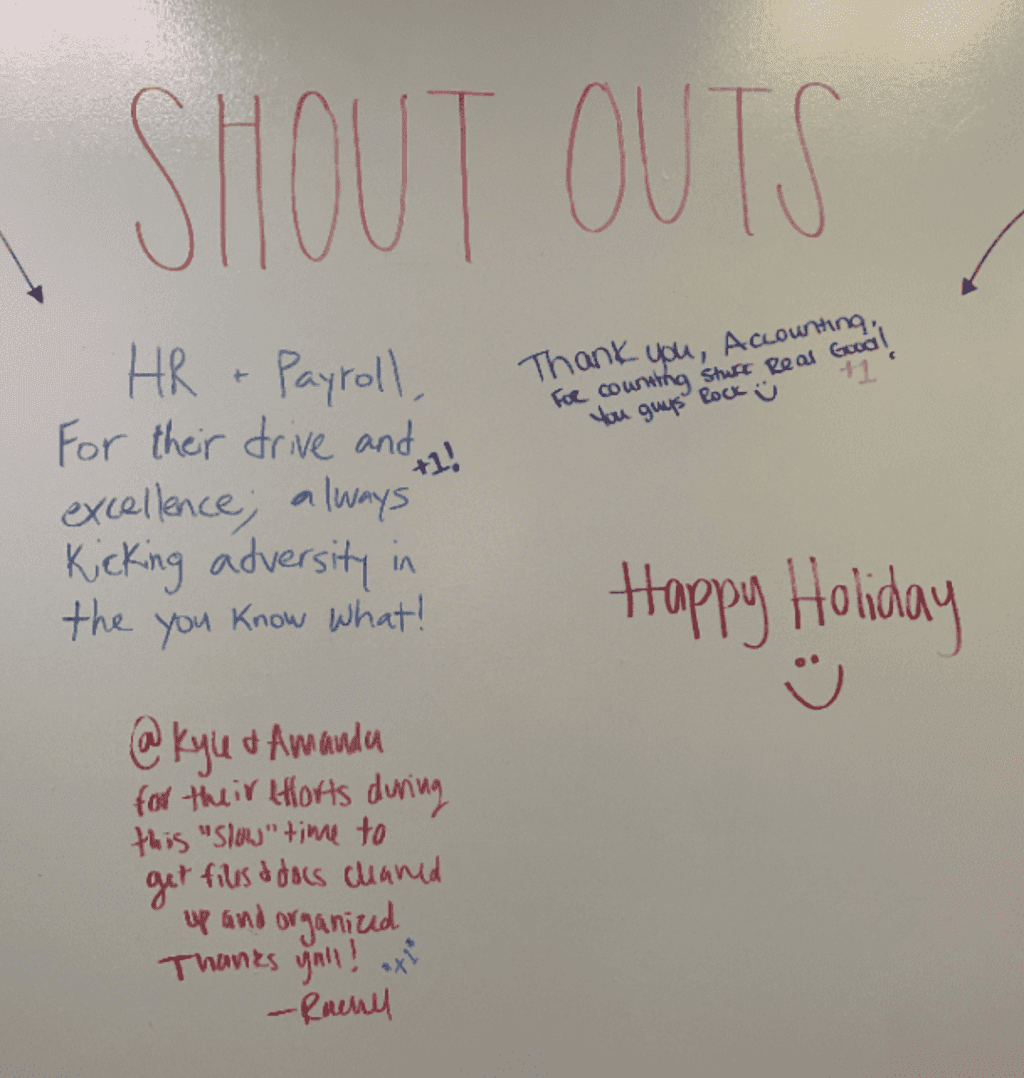 SHOUT OUTS
HR + Payroll,
For their drive and
+1!
excellence; always
Kicking adversity in
the you know what!
Thank you, Accounting,
For counting Stuff Real Good!
+1
You guys Rock
Happy Holiday
@Kyle & Amanda
for their efforts during
this "slow" time to
get files & docs cleaned
up and organized
Thanks yall!
—Rachel